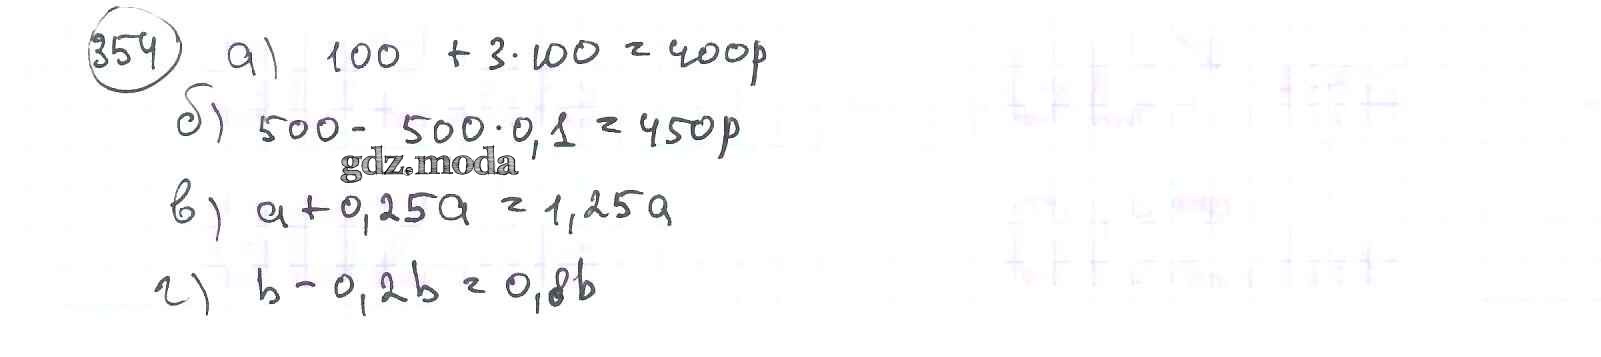 354 а) 100 + 3·100 = 400р
б) 500 - 500·0,1 = 450р
gdz.moda
в) a + 0,25a = 1,25a
г) b - 0,2b = 0,8b